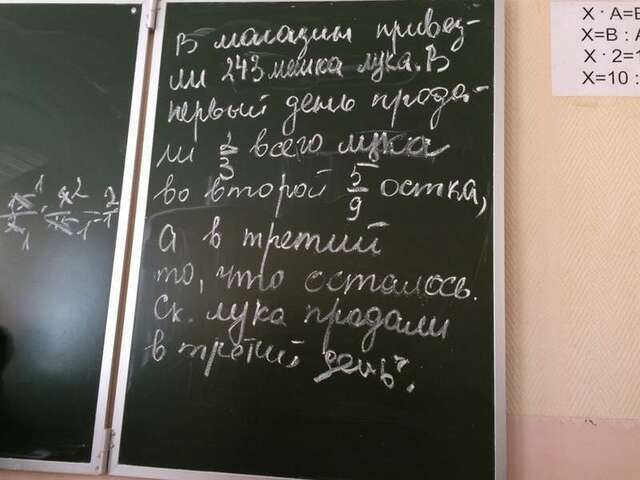 В магазин привез-
ли 243 мешка лука. В
первый день прода-
ли 2/3 всего лука
во второй 5/9 остка,
а в третий
то, что осталось.
Ск. лука продали
в третий день?
X · A=B
X=B : A
X · 2=1
X=10 :